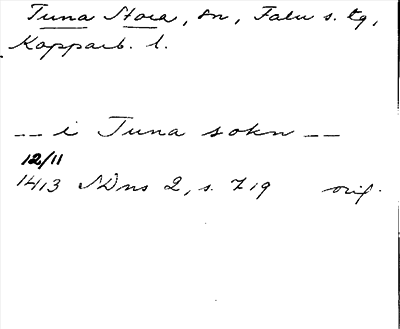 Tuna Stora, sn, Falu s. tg,
Kopparb. l.
-- i Tuna sokn --
12/11
1413 NDns 2, s. 719 orig.